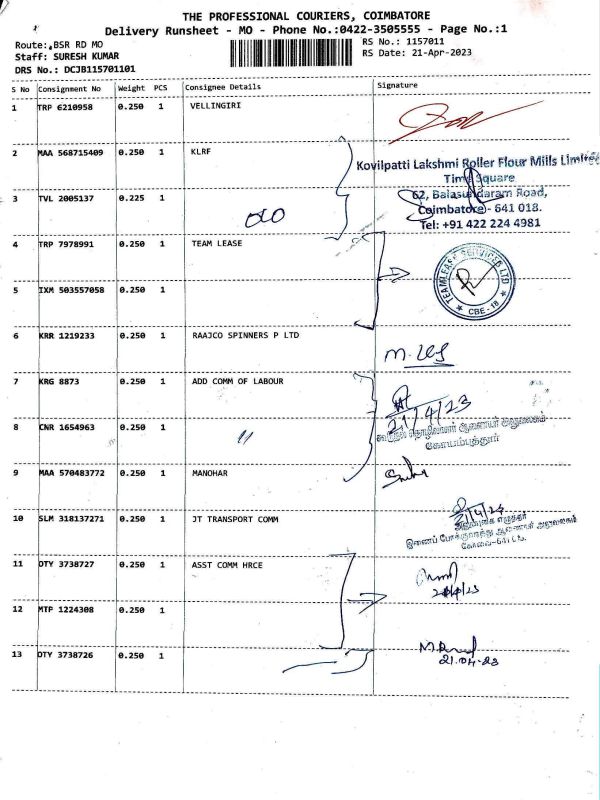 THE PROFESSIONAL COURIERS, COIMBATORE
Delivery Runsheet - MO - Phone No.:0422-3505555 - Page No.:1
Route: BSR RD MO
RS No.: 1157011
Staff: SURESH KUMAR
RS Date: 21-Apr-2023
DRS No.: DCJB115701101
S No Consignment No Weight PCS Consignee Details Signature
1 TRP 6210958 0.250 1 VELLINGIRI
2 MAA 568715409 0.250 1 KLRF
Kovilpatti Lakshmi Roller Flour Mills Limited
Time Square
3 TVL 2005137 0.225 1
62, Balasundaram Road,
Coimbatore - 641 018.
Tel: +91 422 224 4981
4 TRP 7978991 0.250 1 TEAM LEASE
TEAMLEASE SERVICES LTD
CBE - 18
5 IXM 503557058 0.250 1
6 KRR 1219233 0.250 1 RAAJCO SPINNERS P LTD
7 KRG 8873 0.250 1 ADD COMM OF LABOUR
21/4/23
8 CNR 1654963 0.250 1
கூடுதல் தொழிலாளர் ஆணையர் அலுவலகம்
கோயம்புத்தூர்
9 MAA 570483772 0.250 1 MANOHAR
10 SLM 318137271 0.250 1 JT TRANSPORT COMM
21/4/23
இணைப் போக்குவரத்து ஆணையர் அலுவலகம்
11 OTY 3738727 0.250 1 ASST COMM HRCE
12 MTP 1224308 0.250 1
13 OTY 3738726 0.250 1
21.04.23